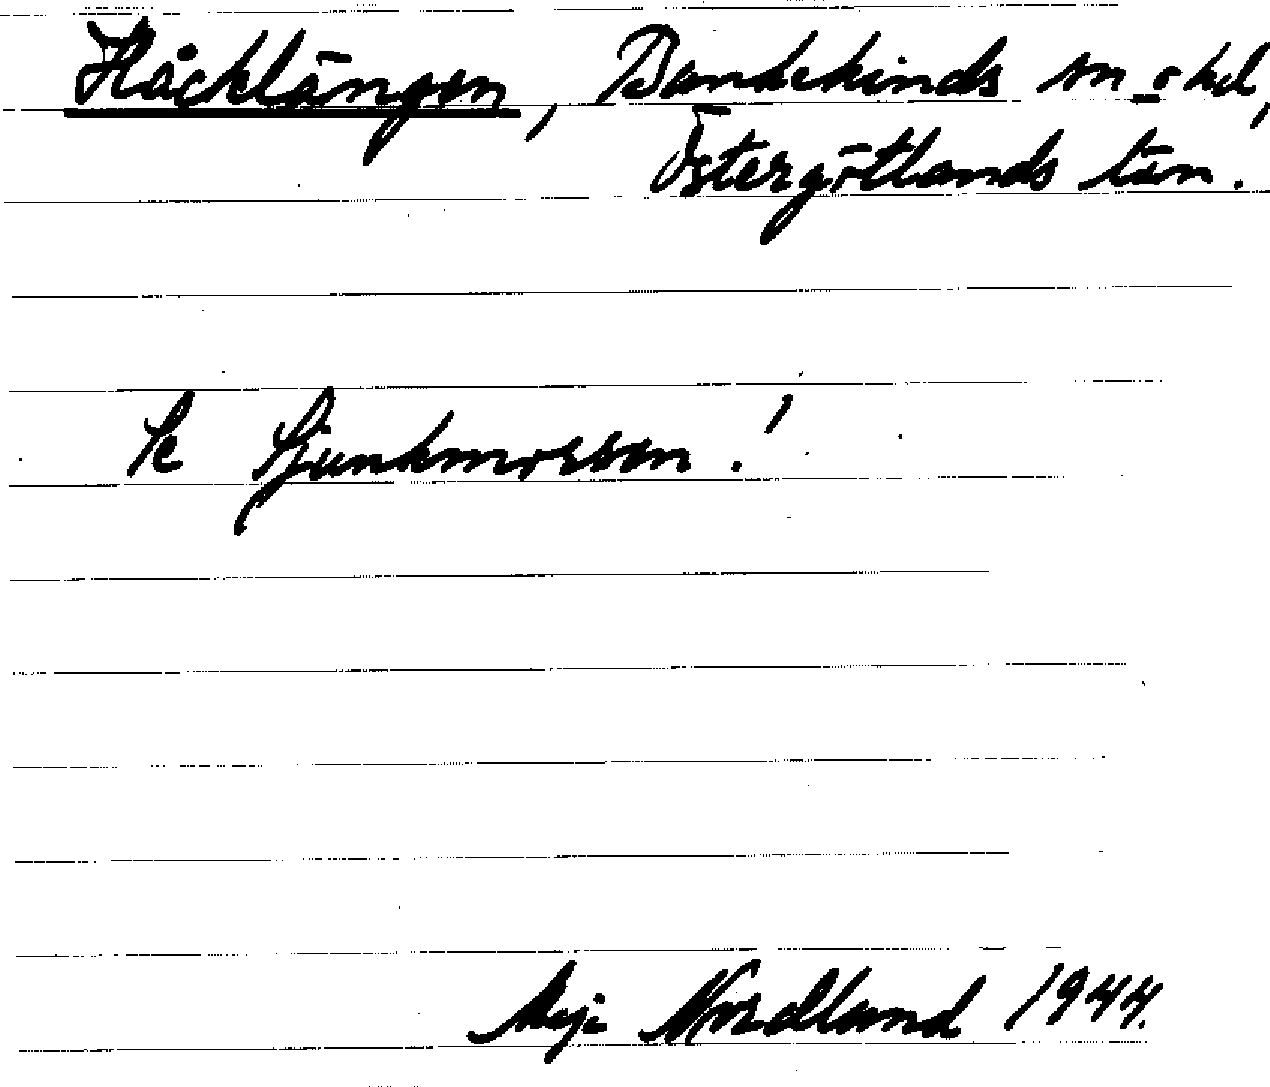 Håcklängen, Bankekinds sn o hd,
Östergötlands län.
Se Sjunkmossen!
Maji Nordland 1944.